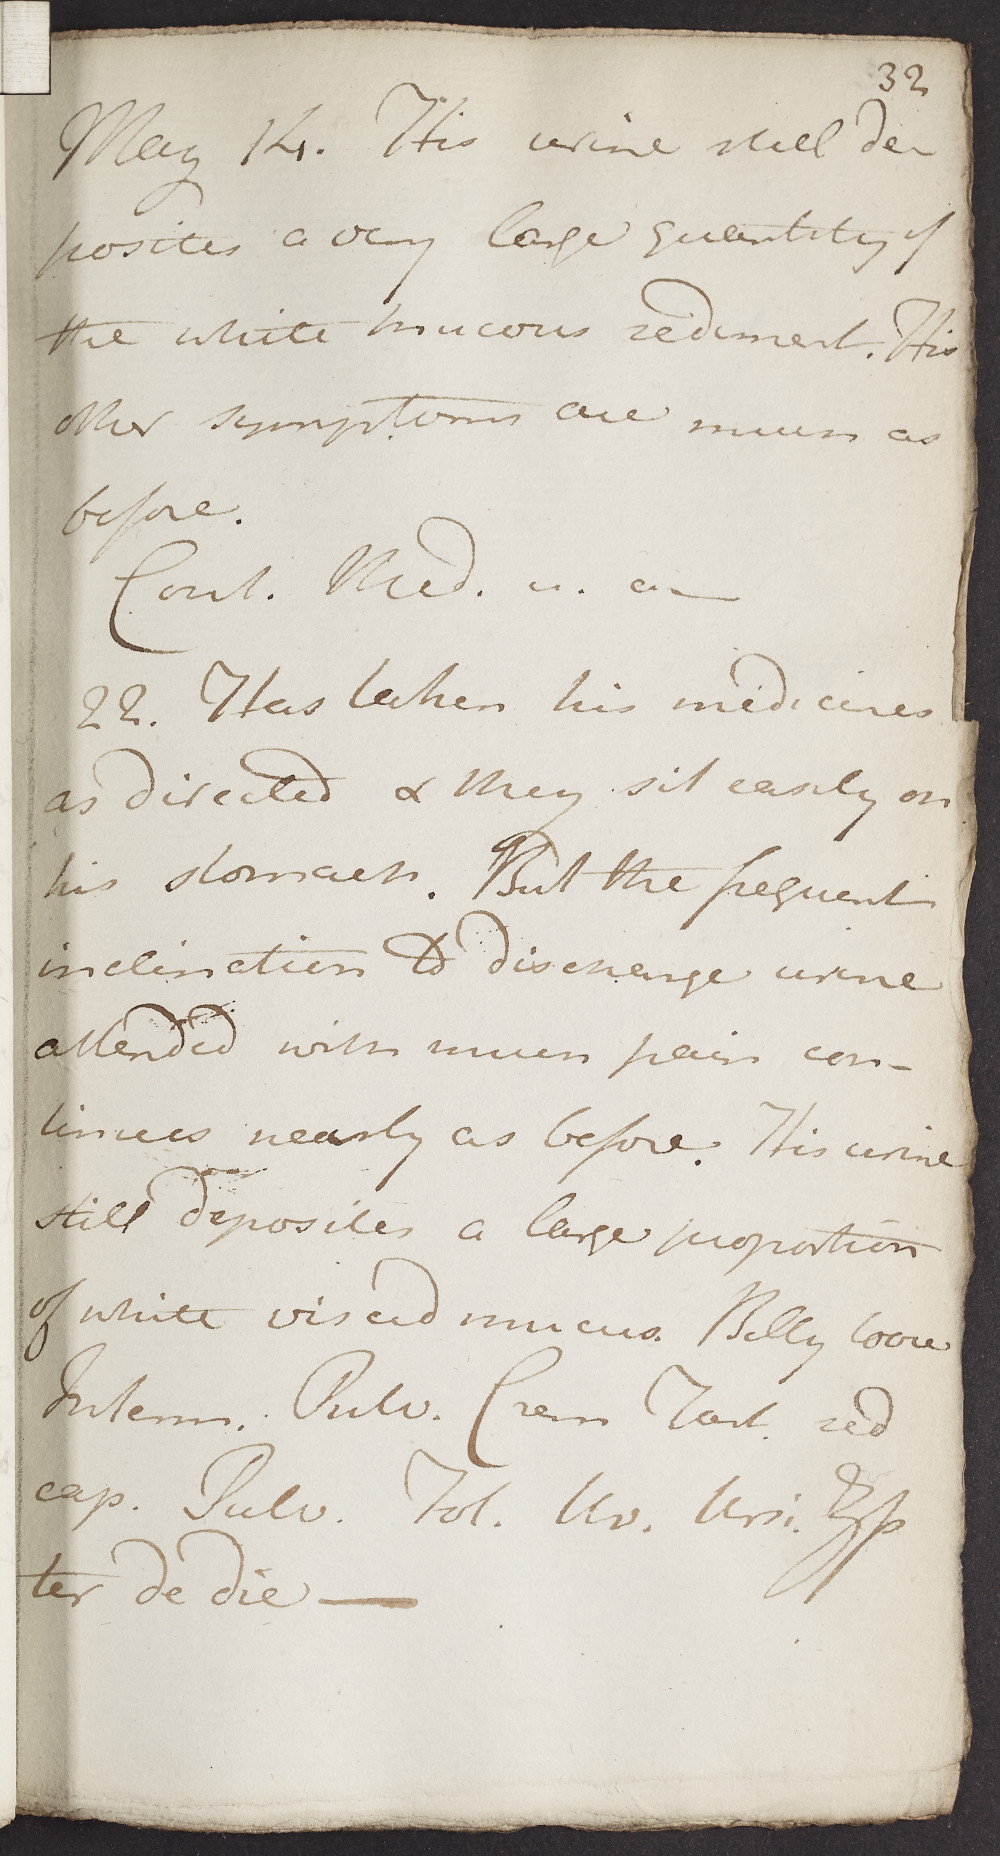 32
May 14. His urine still de-
posites a very large quantity of
the white mucous sediment. His
other symptoms are much as
before.
Cont. Med. u. a
22. Has taken his medicines
as directed & they sit easily on
his stomach. But the frequent
inclination to discharge urine
attended with much pain con-
tinues nearly as before. His urine
still deposites a large proportion
of white viscid mucus. Belly loose
Interm. Pulv. Crem Tart. sed
cap. Pulv. Fol. Uv. Ursi. ʒſs
ter de die —